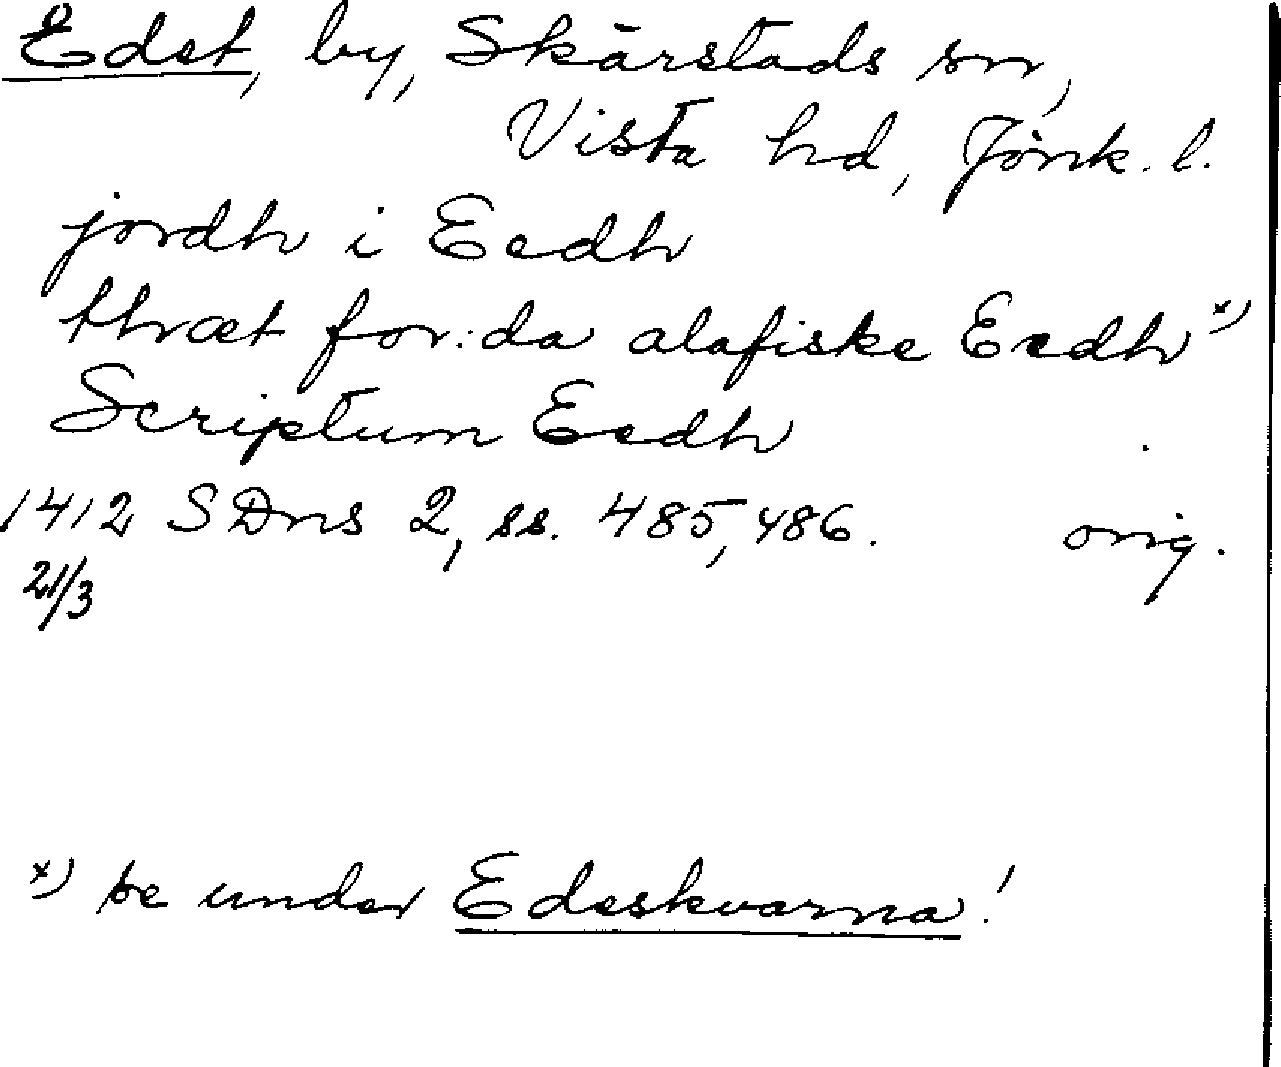 Edet, by, Skärstads sn,
Vista hd, Jönk. l.
jordh i Eedh
thræt for:da alafiske Eedh x)
Scriptum Eedh
1412 SDns 2, ss. 485, 486. orig.
21/3
x) se under Edeskvarna!